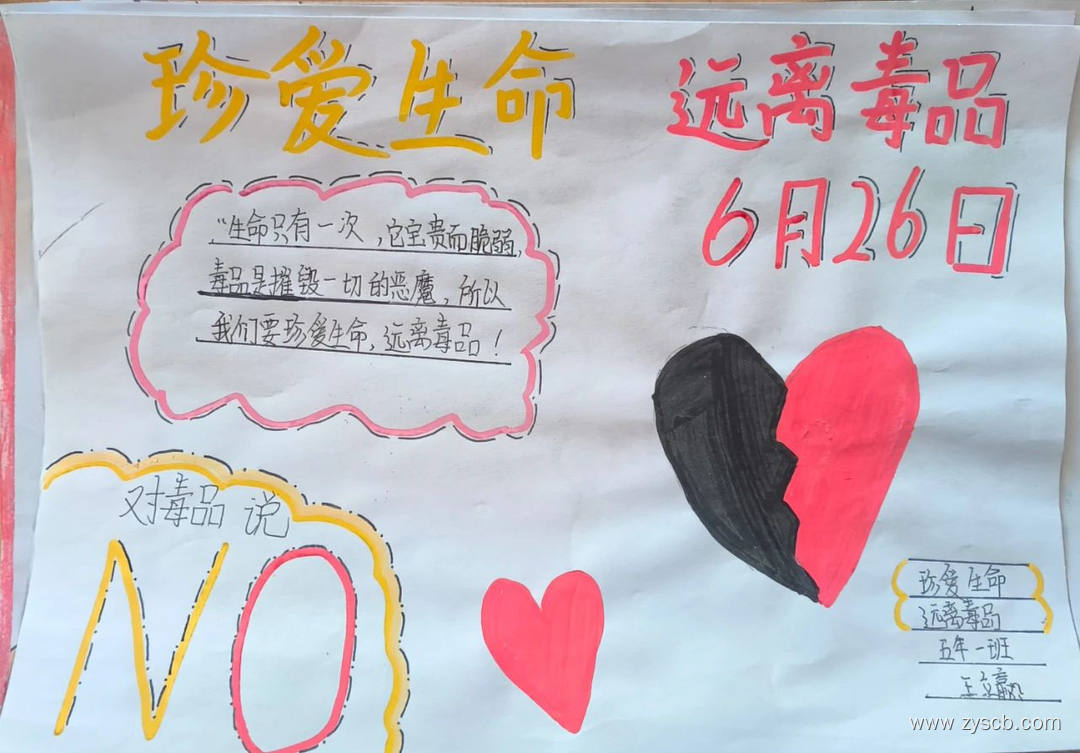 珍爱生命 远离毒品
6月26日
"生命只有一次,它宝贵而脆弱,
毒品是摧毁一切的恶魔,所以
我们要珍爱生命,远离毒品!
对毒品说
NO
珍爱生命
远离毒品
五年一班
www.zyscb.com